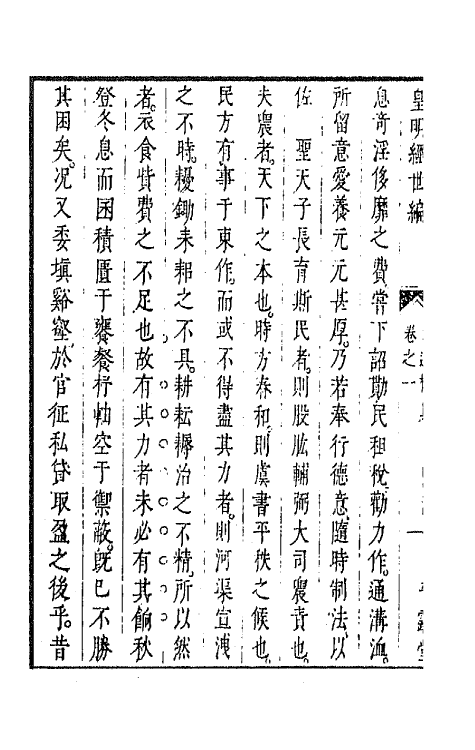 皇明經世編
卷之一
息奇淫侈靡之費嘗下詔勸民租稅勸力作通溝洫
所留意愛養元元甚厚乃若奉行德意隨時制法以
佐　聖天子長育斯民者則股肱輔弼大司農責也
夫農者天下之本也時方春和則虞書平秩之候也
民方有事于東作而或不得盡其力者則河渠宣洩
之不時耰鋤耒耜之不具耕耘耨治之不精所以然
者衣食貲費之不足也故有其力者未必有其餉秋
登冬息而囷積匱于饔餐杼軸空于禦蔽既已不勝
其困矣況又委塡谿壑於官征私貸取盈之後乎昔